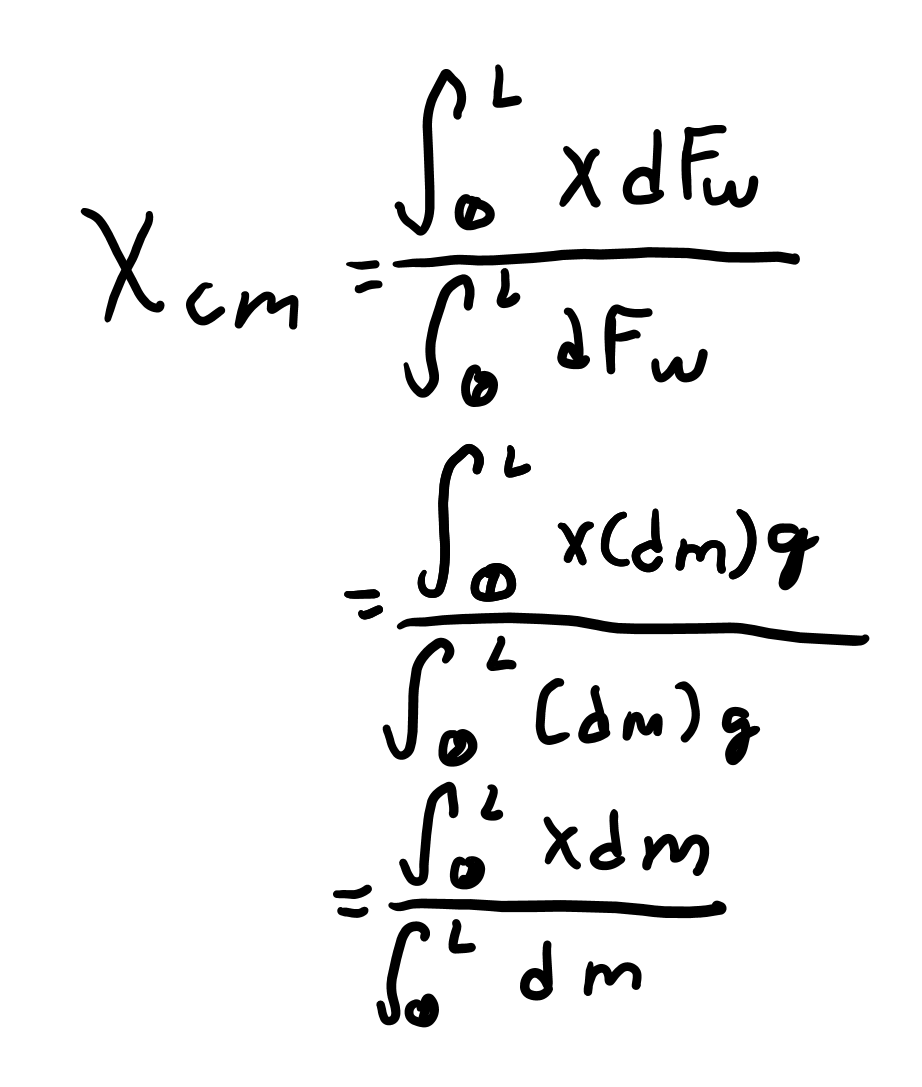 X_cm = ∫_0^L x dF_w / ∫_0^L dF_w
= ∫_0^L x(dm)g / ∫_0^L (dm)g
= ∫_0^L x dm / ∫_0^L dm